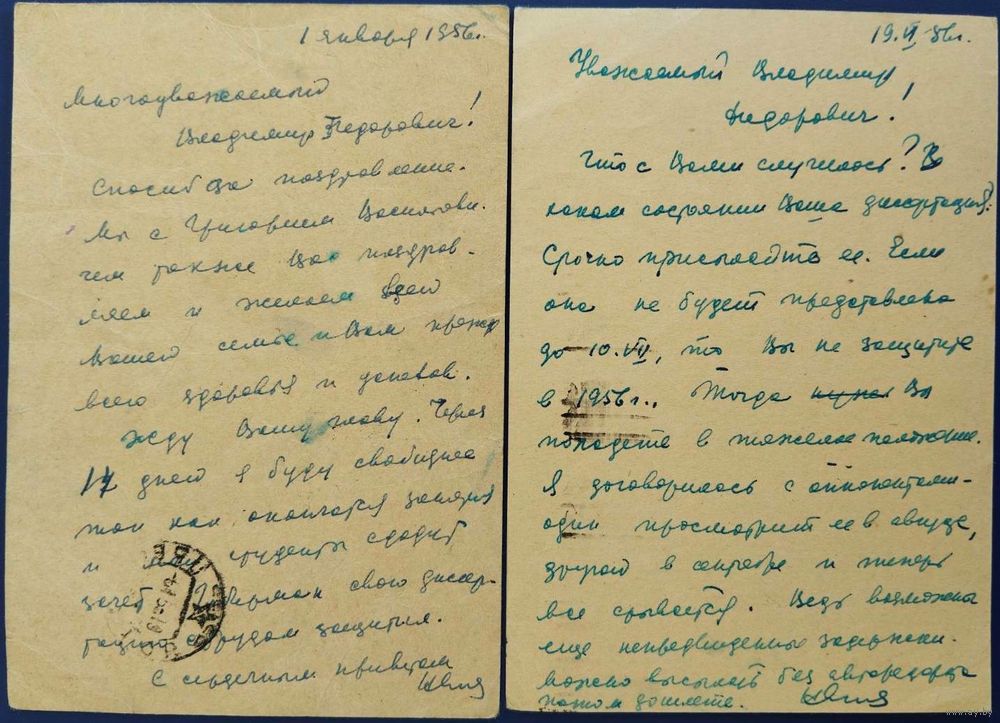 1 января 1956г.
Многоуважаемый
Владимир Федорович!
Спасиб за поздравление.
Мы с Григорием Васильеви-
чем также Вас поздрав-
ляем и желаем всей
Вашей семье и Вам прежде
всего здоровья и успехов.
Жду Вашу главу. Через
17 дней я буду свободнее
так как окончатся занятия
и студенты сдадут
зачет свою диссер-
тацию с трудом защитил.
С сердечным приветом
19.VI 56г.
Уважаемый Владимир
Федорович!
Что с Вами случилось? В
каком состоянии Ваша диссертация?
Срочно присылайте ее. Если
она не будет представлена
до 10.VII, то Вы не защитите
в 1956г. Тогда Вы
попадете в тяжелое положение.
Я договорилась с оппонентами-
один просмотрит ее в августе,
другой в сентябре и теперь
все срывается. Ведь возможны
еще непредвиденные задержки.
Можно выслать без автореферата
потом дошлете.
www.ay.by